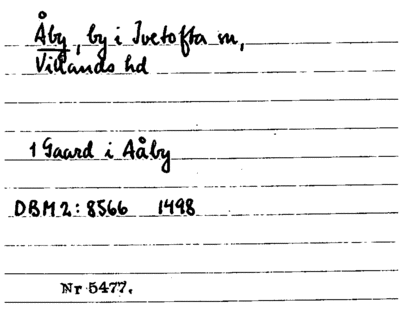 Åby, by i Ivetofta sn,
Villands hd
1 Gaard i Aåby
DBM2: 8566 1498
Nr 5477.